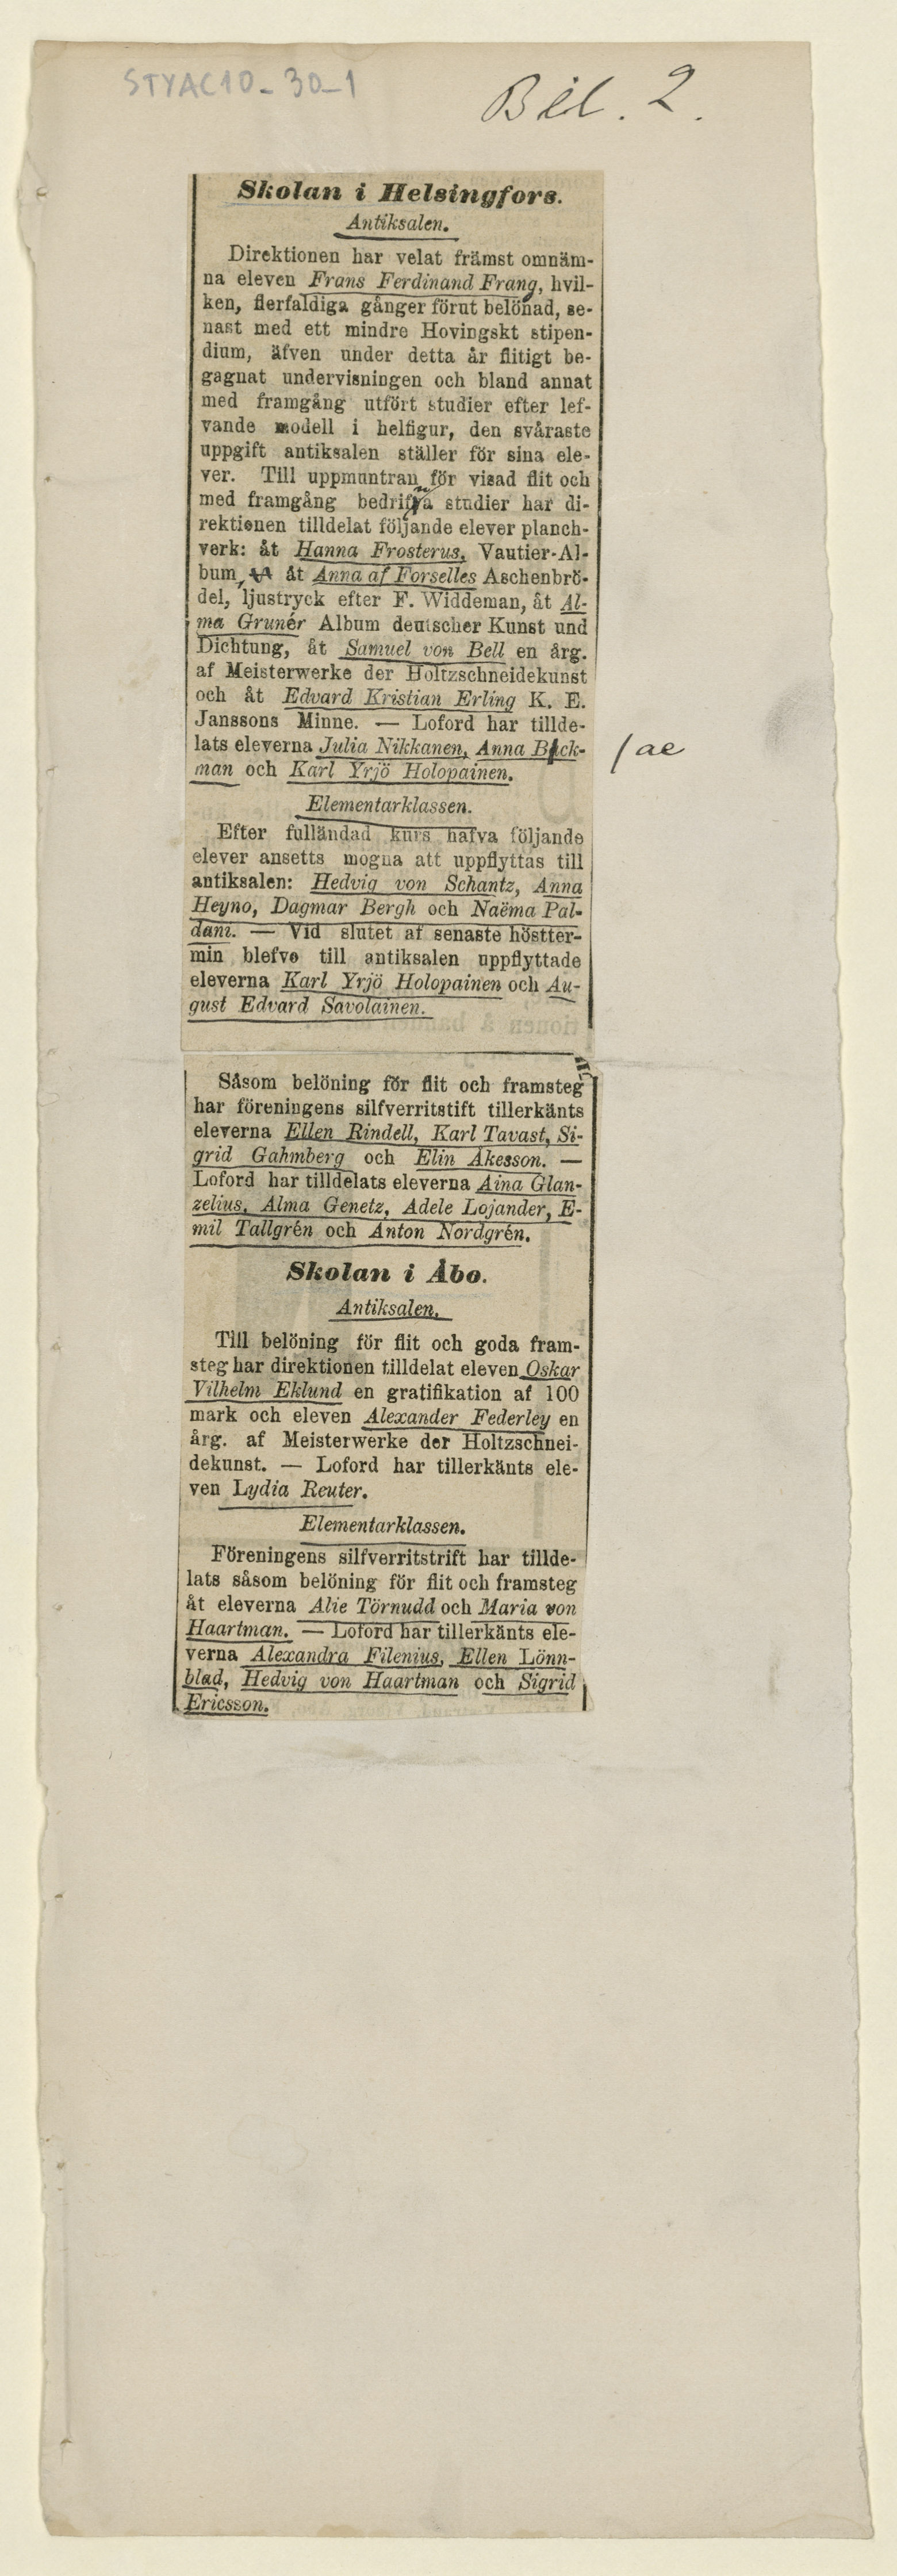 STYAC10-30-1
Bil. 2.
Skolan i Helsingfors.
Antiksalen.
Direktionen har velat främst omnäm-
na eleven Frans Ferdinand Frang, hvil-
ken, flerfaldiga gånger förut belönad, se-
nast med ett mindre Hovingskt stipen-
dium, äfven under detta år flitigt be-
gagnat undervisningen och bland annat
med framgång utfört studier efter lef-
vande modell i helfigur, den svåraste
uppgift antiksalen ställer för sina ele-
ver. Till uppmuntran för visad flit och
med framgång bedrifna studier har di-
rektionen tilldelat följande elever planch-
verk: åt Hanna Frosterus, Vautier-Al-
bum, åt Anna af Forselles Aschenbrö-
del, ljustryck efter F. Widdeman, åt Al-
ma Grunér Album deutscher Kunst und
Dichtung, åt Samuel von Bell en årg.
af Meisterwerke der Holtzschneidekunst
och åt Edvard Kristian Erling K. E.
Janssons Minne. — Loford har tillde-
lats eleverna Julia Nikkanen, Anna Bäck-
/ae
man och Karl Yrjö Holopainen.
Elementarklassen.
Efter fulländad kurs hafva följande
elever ansetts mogna att uppflyttas till
antiksalen: Hedvig von Schantz, Anna
Heyno, Dagmar Bergh och Naëma Pal-
dani. — Vid slutet af senaste höstter-
min blefve till antiksalen uppflyttade
eleverna Karl Yrjö Holopainen och Au-
gust Edvard Savolainen.
Såsom belöning för flit och framsteg
har föreningens silfverritstift tillerkänts
eleverna Ellen Rindell, Karl Tavast, Si-
grid Gahmberg och Elin Åkesson. —
Loford har tilldelats eleverna Aina Glan-
zelius, Alma Genetz, Adele Lojander, E-
mil Tallgrén och Anton Nordgrén.
Skolan i Åbo.
Antiksalen.
Till belöning för flit och goda fram-
steg har direktionen tilldelat eleven Oskar
Vilhelm Eklund en gratifikation af 100
mark och eleven Alexander Federley en
årg. af Meisterwerke der Holtzschnei-
dekunst. — Loford har tillerkänts ele-
ven Lydia Reuter.
Elementarklassen.
Föreningens silfverritstrift har tillde-
lats såsom belöning för flit och framsteg
åt eleverna Alie Törnudd och Maria von
Haartman. — Loford har tillerkänts ele-
verna Alexandra Filenius, Ellen Lönn-
blad, Hedvig von Haartman och Sigrid
Ericsson.